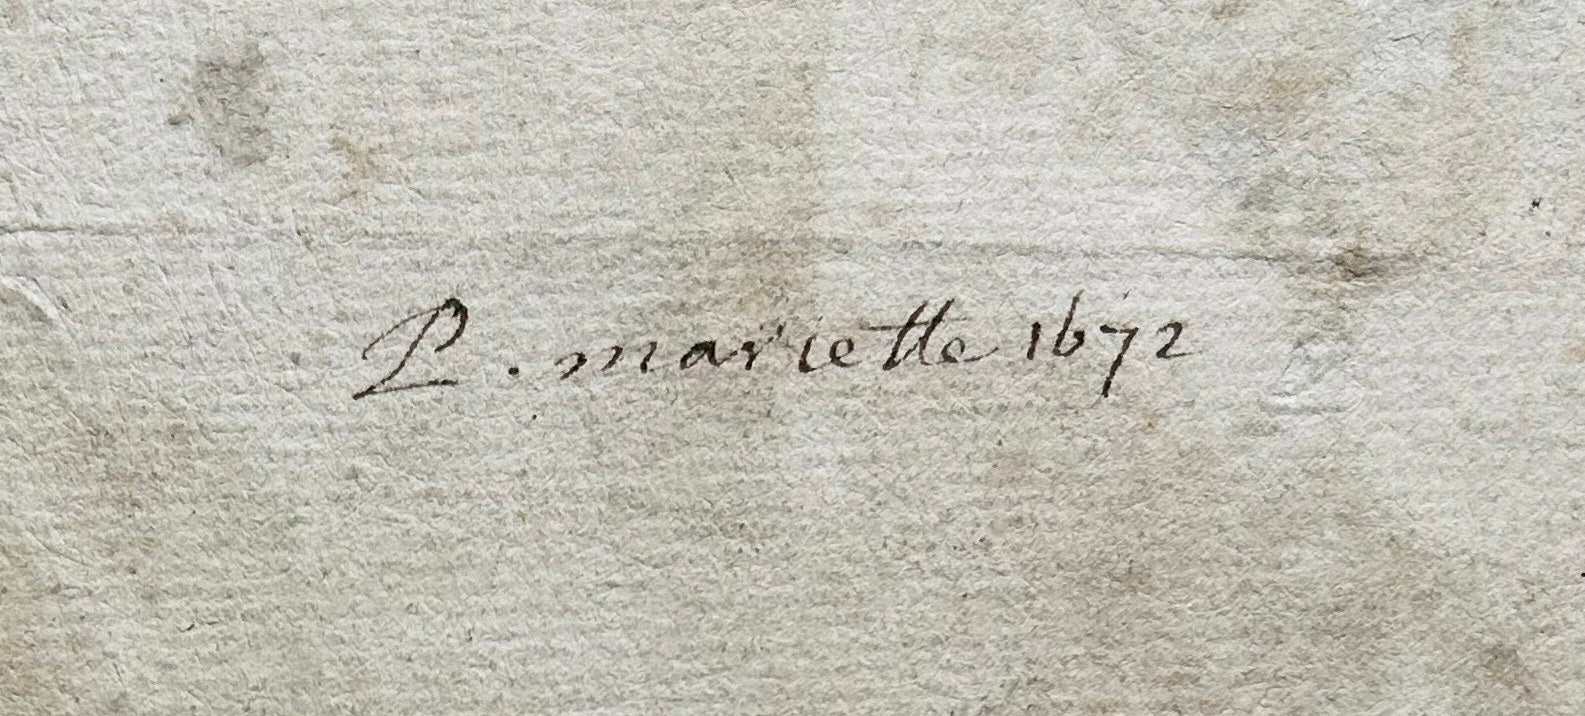 P. mariette 1672